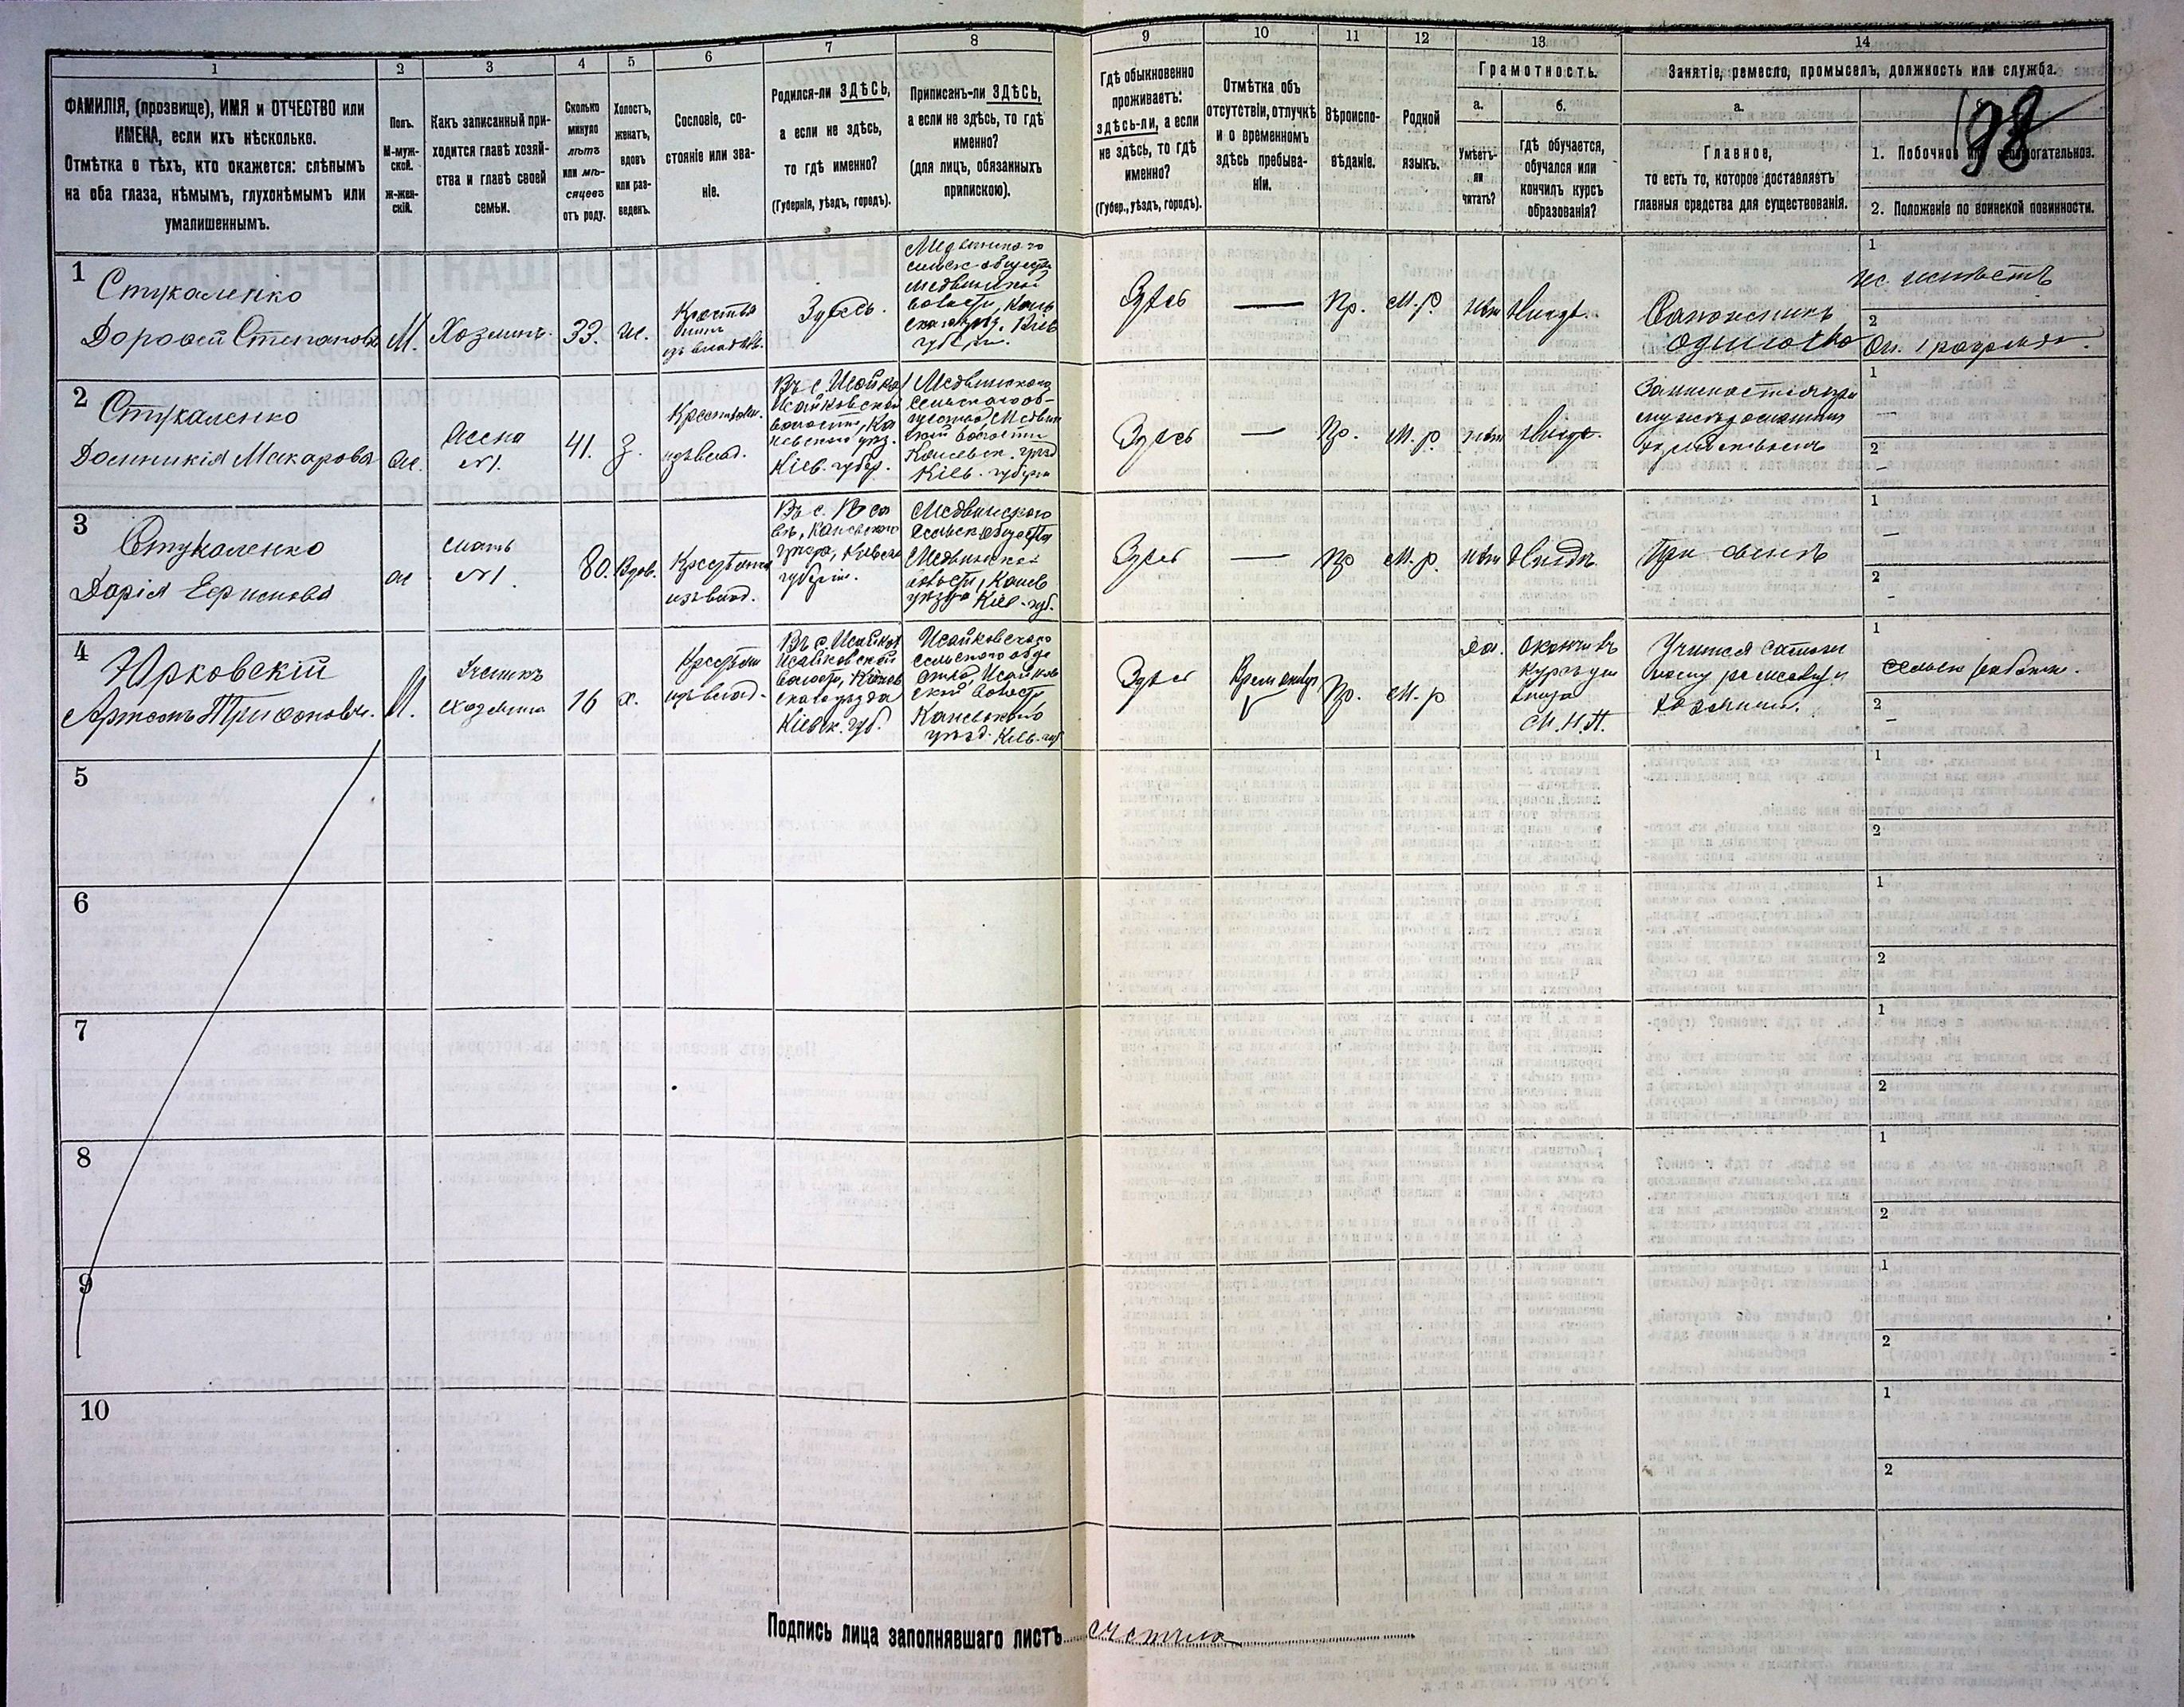 1 2 3 4 5 6 7 8 9 10 11 12 13 14
ФАМИЛІЯ, (прозвище), ИМЯ и ОТЧЕСТВО или
ИМЕНА, если ихъ нѣсколько.
Отмѣтка о тѣхъ, кто окажется: слѣпымъ
на оба глаза, нѣмымъ, глухонѣмымъ или
умалишеннымъ.
Полъ.
М-муж-
ской.
Ж-жен-
скій.
Какъ записанный при-
ходится главѣ хозяй-
ства и главѣ своей
семьи.
Сколько
минуло
лѣтъ
или мѣ-
сяцевъ
отъ роду.
Холостъ,
женатъ,
вдовъ
или раз-
веденъ.
Сословіе, со-
стояніе или зва-
ніе.
Родился-ли ЗДѢСЬ,
а если не здѣсь,
то гдѣ именно?
(Губернія, уѣздъ, городъ).
Приписанъ-ли ЗДѢСЬ,
а если не здѣсь, то гдѣ
именно?
(для лицъ, обязанныхъ
припискою).
Гдѣ обыкновенно
проживаетъ:
здѣсь-ли, а если
не здѣсь, то гдѣ
именно?
(Губер., уѣздъ, городъ).
Отмѣтка объ
отсутствіи, отлучкѣ
и о временномъ
здѣсь пребыва-
ніи.
Вѣроиспо-
вѣданіе.
Родной
языкъ.
Грамотность.
а.
Умѣетъ-
ли
читать?
б.
гдѣ обучается,
обучался или
кончилъ курсъ
образованія?
Занятіе, ремесло, промыселъ, должность или служба.
а.
Главное,
то есть то, которое доставляетъ
главныя средства для существованія.
198
1. Побочное или вспомогательное.
2. Положеніе по воинской повинности.
1
Стукаленко
Дорофей Степановъ
М.
Хозяинъ.
33.
ж.
изъ владѣл.
Здѣсь.
Медвинского
сельск. общества
Медвинской
волости, Канев
ского уѣзд. Кіев
губерн.
Здѣсь
—
Пр.
М.р.
нѣт
Нигдѣ.
Сапожникъ
1
2
2
Стукаленко
Домникія Макарова
ж.
Жена
№1.
41.
З.
Крестьян.
изъ влад.
Въ с. Исайко
Исайковской
волости, Ка
невского уѣз.
Кіев. губер.
Медвинскаго
Сельскаго об-
щества, Медвин
ской волости
Каневск. уѣзд
Кіев. губерн
Здѣсь
—
Пр.
М.р.
нѣт
Нигдѣ.
1
—
2
—
3
Стукаленко
Дарія
ж
мать
№1.
80.
Вдов.
Крестьянка
изъ влад.
Въ с.
Каневского
уѣзда, Кіевск
губерніи.
Медвинского
Сельск общества
Медвинской
волости, Канев
уѣзда Кіев. губ.
Здѣсь
—
Пр
М.р.
нѣт
Нигдѣ.
При сынѣ
1
—
2
-
4
Юрковскій
Артемъ Трифоновъ.
М.
Ученикъ
хозяина
16
х.
изъ влад.
Въ с. Исайках
Исайковской
волости, Канев
ского уѣзда
Кіевск. губ.
Исайковского
сельского обще
ства, Исайков
ской волости
Каневского
уѣзд. Кіев. губ
Здѣсь
Пр.
М.р
да.
Окончивъ
курсъ
М.Н.П.
Учится сапож
ному ремеслу у
хозяина.
1
2
—
5
1
2
6
1
2
7
1
2
8
1
2
9
1
2
10
1
2
Подпись лица заполнявшаго листъ